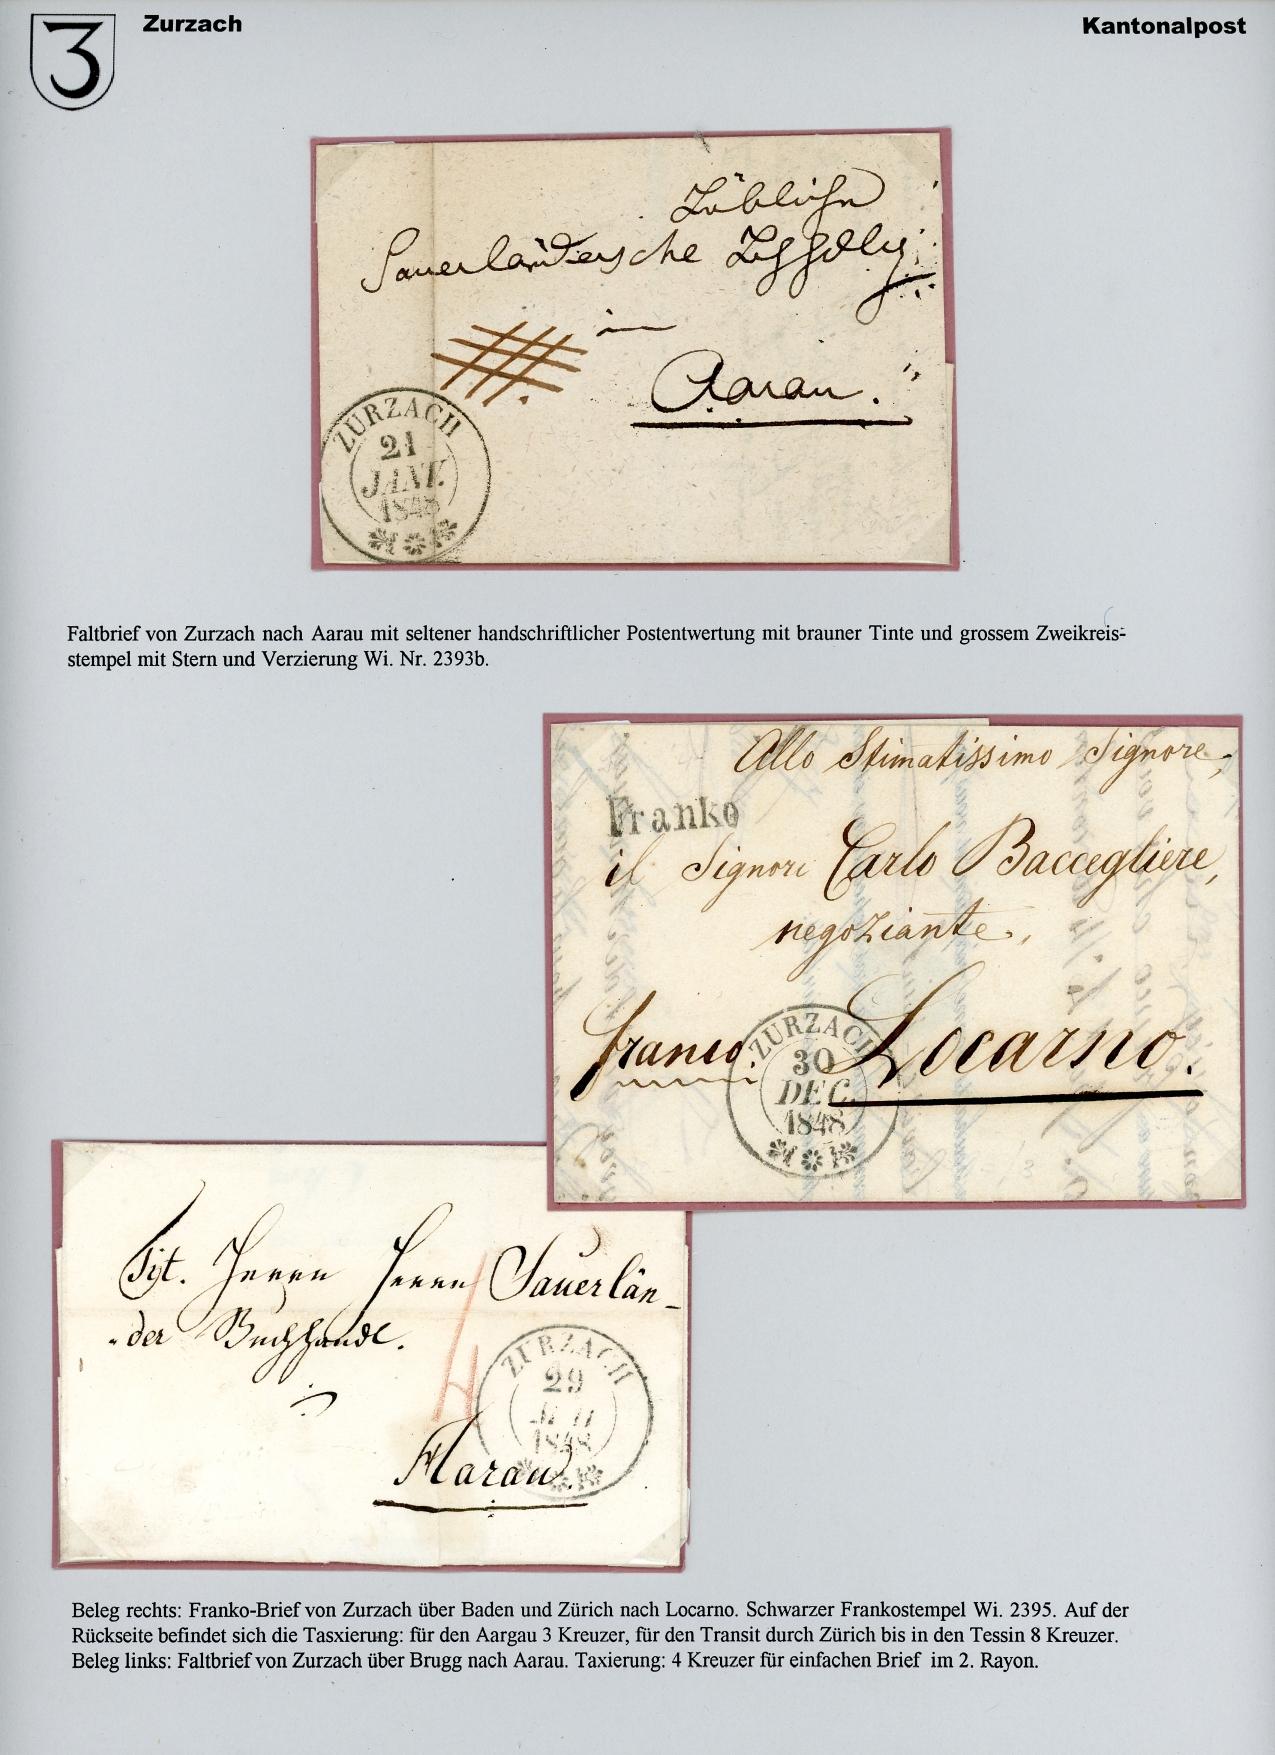 3
Zurzach
Kantonalpost
Löbliche
Sauerländersche
in
Aarau.
ZURZACH
21
JANV.
1848
Faltbrief von Zurzach nach Aarau mit seltener handschriftlicher Postentwertung mit brauner Tinte und grossem Zweikreis-
stempel mit Stern und Verzierung Wi. Nr. 2393b.
Allo Stimatissimo Signore,
Franko
il Signori Carlo Baccegliere,
negoziante.,
franco. Locarno.
ZURZACH
30
DEC.
1848
Tit. Herrn Herrn Sauerlän-
der Buchhandl.
4
ZURZACH
29
1848
Aarau.
Beleg rechts: Franko-Brief von Zurzach über Baden und Zürich nach Locarno. Schwarzer Frankostempel Wi. 2395. Auf der
Rückseite befindet sich die Tasxierung: für den Aargau 3 Kreuzer, für den Transit durch Zürich bis in den Tessin 8 Kreuzer.
Beleg links: Faltbrief von Zurzach über Brugg nach Aarau. Taxierung: 4 Kreuzer für einfachen Brief im 2. Rayon.